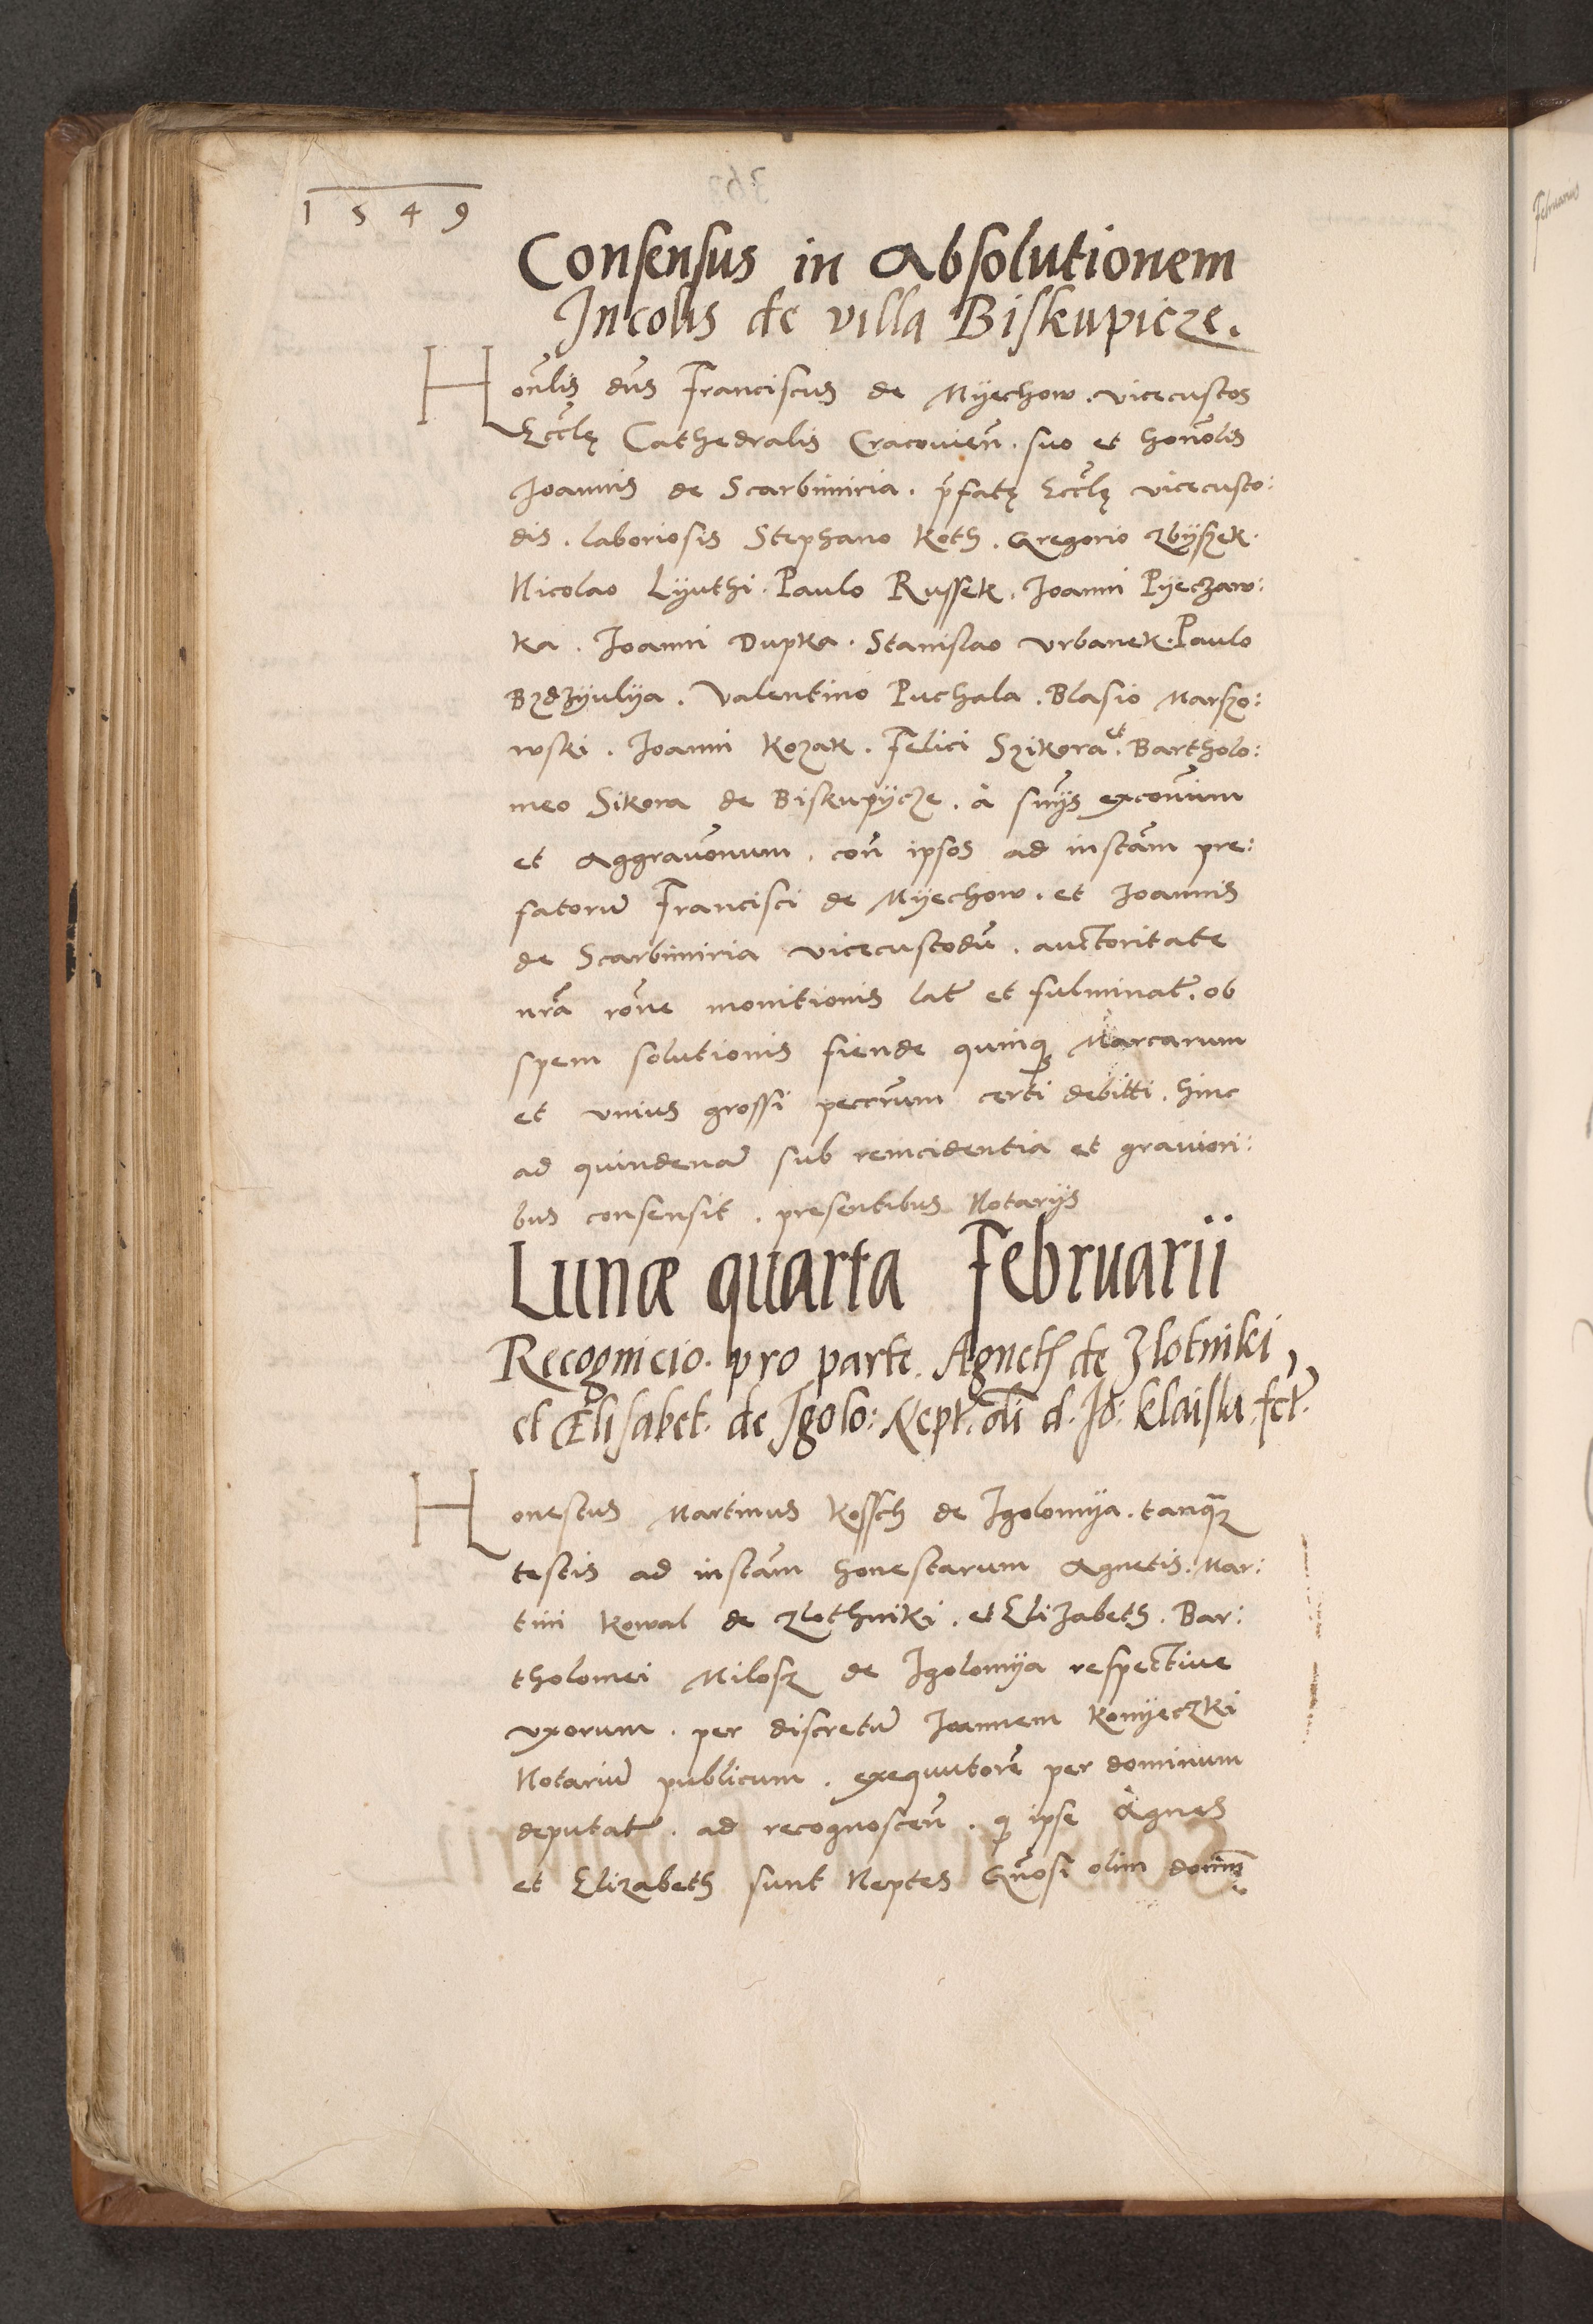 1 5 4 9
Consensus in Absolutionem
Incolis de villa Biskupicze.
Honlis dns Franciscus de Myechow. vicecustos
Eccle Cathedralis Cracovien. suo et honolis
Joannis de Scarbimiria. pfate Eccle vicecusto:
dis. laboriosis Stephano Koth. Gregorio Zbyszek.
Nicolao Lyuthi. Paulo Russek. Joanni Pyeczaw:
ka. Joanni Dupka. Stanislao Vrbanek. Paulo
Bzdzyulya. Valentino Puchala. Blasio Marszo:
wski. Joanni Kozak. Felici Szikora et Bartholo:
meo Sikora de Biskupycze. a snys exconum
et Aggravonum. con ipsos ad instam pre:
fatoru Francisci de Myechow. et Joannis
de Scarbimiria vicecustodu. auctoritate
nra rone monitionis lat et fulminat. ob
spem solutionis fiende quinq Marcarum
et vnius grossi peccnum certi debitti. hinc
ad quindena sub reincidentia et graviori:
bus consensit. presentibus Notarys
Lunæ quarta Februarii
Recognicio. pro parte. Agneth de Zlotniki,
et Elisabet. de Igolo: Nept. oli d. Jo: Klaislu. fct.
Honestus Martinus Kossch de Igolomya. tanq
testis ad instam honestarum Agnetis. Mar:
tini Kowal de Zlothniki. et Elizabeth. Bar:
tholomei Milosz de Igolomya respective
vxorum. per discretu Joannem Komyeczki
Notariu publicum. exequutore per dominum
deputat. ad recognoscen. q ipse Agnes
et Elizabeth sunt Neptes Gnosi olim domini
Februarius